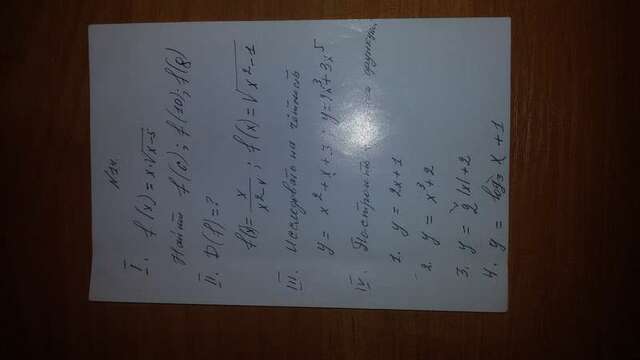 N 14.
I. f(x) = x·√x-5
Найти f(6); f(10); f(8)
II. D(f) = ?
f(x) = x/x²-4; f(x) = √x²-1
III. Исследовать на чётность
y = x² + x + 3; y = 2x³ + 3x⁵
IV. Построить функции
1. y = 2x+1
2. y = x³+2
3. y = 2|x|+2
4. y = log₃ x + 1